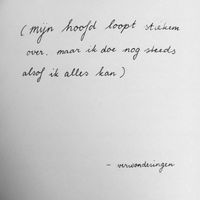 (mijn hoofd loopt stiekem
over. maar ik doe nog steeds
alsof ik alles kan)
- verwonderingen